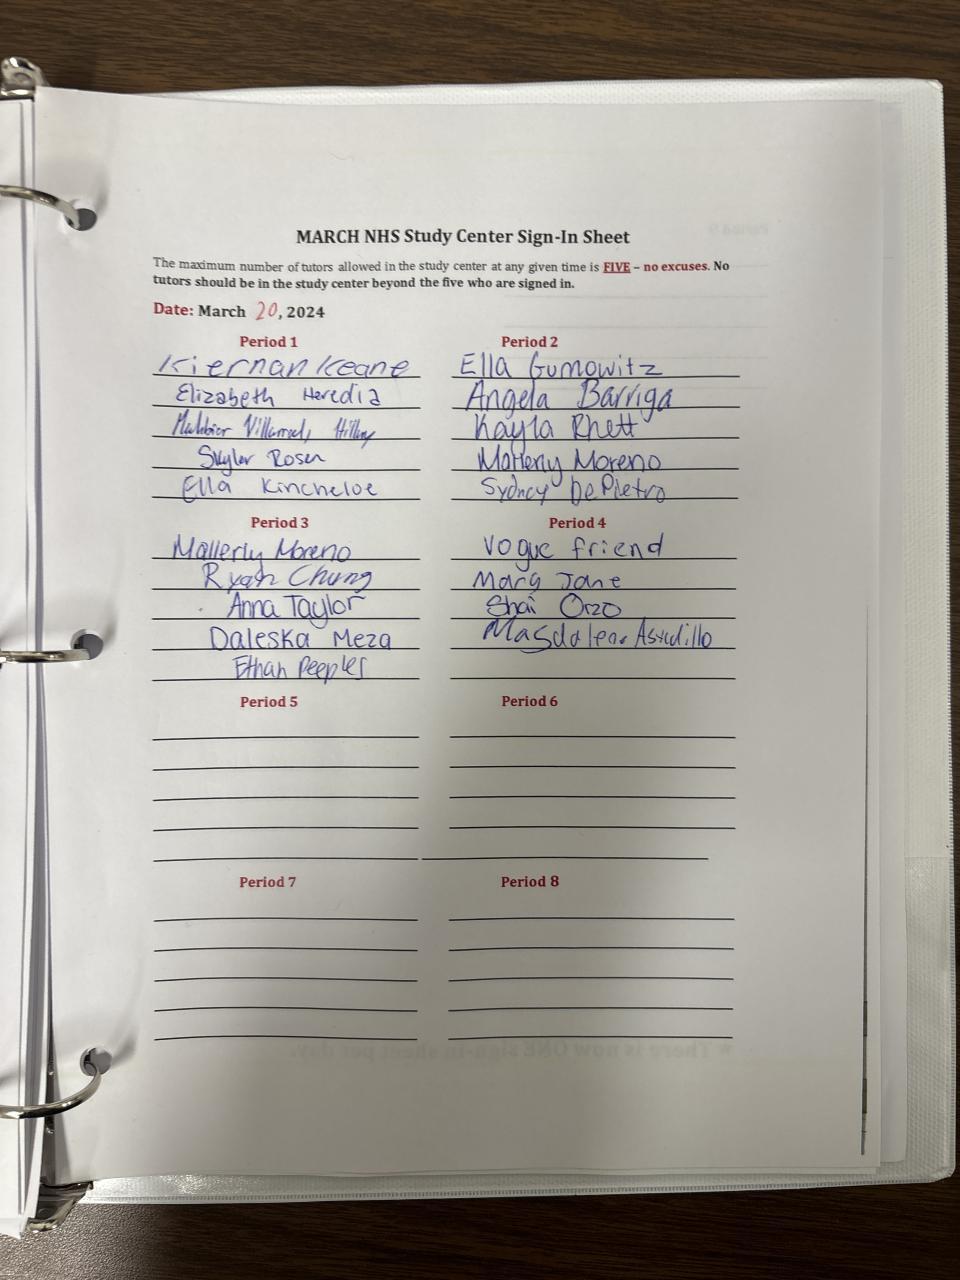 MARCH NHS Study Center Sign-In Sheet
The maximum number of tutors allowed in the study center at any given time is FIVE – no excuses. No
tutors should be in the study center beyond the five who are signed in.
Date: March 20, 2024
Period 1
Kiernan Keane
Elizabeth Heredia
Hillary
Skyler Rosen
Ella Kincheloe
Period 2
Ella Gumowitz
Angela Barriga
Kayla Rhett
Mallerly Moreno
Sydney DePietro
Period 3
Mallerly Moreno
Ryan Chung
Anna Taylor
Daleska Meza
Ethan Peeples
Period 4
Vogue friend
Mary Jane
Shai Orzo
Magdalena Astudillo
Period 5
Period 6
Period 7
Period 8